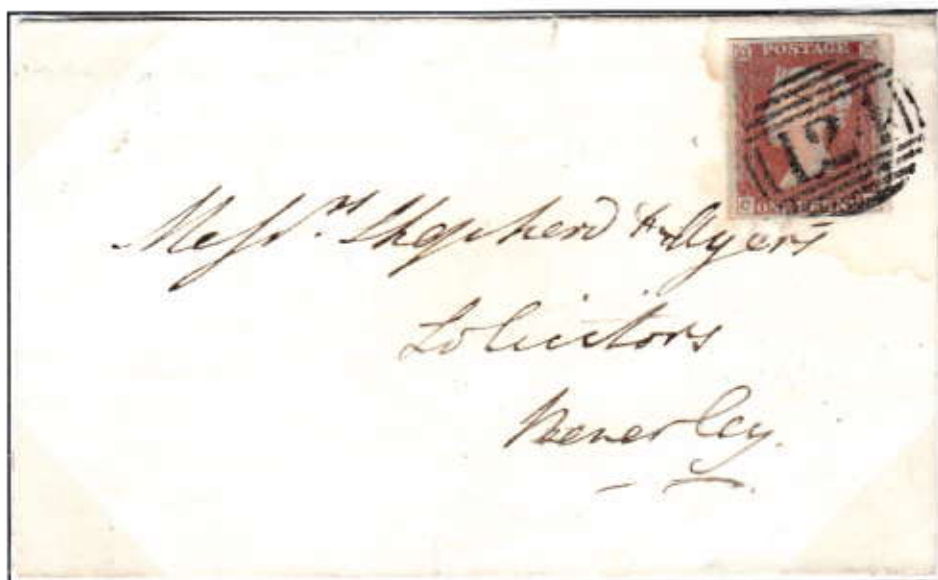 POSTAGE
12
C
Messrs. Shepherd & Myers
Solicitors
Beverley.